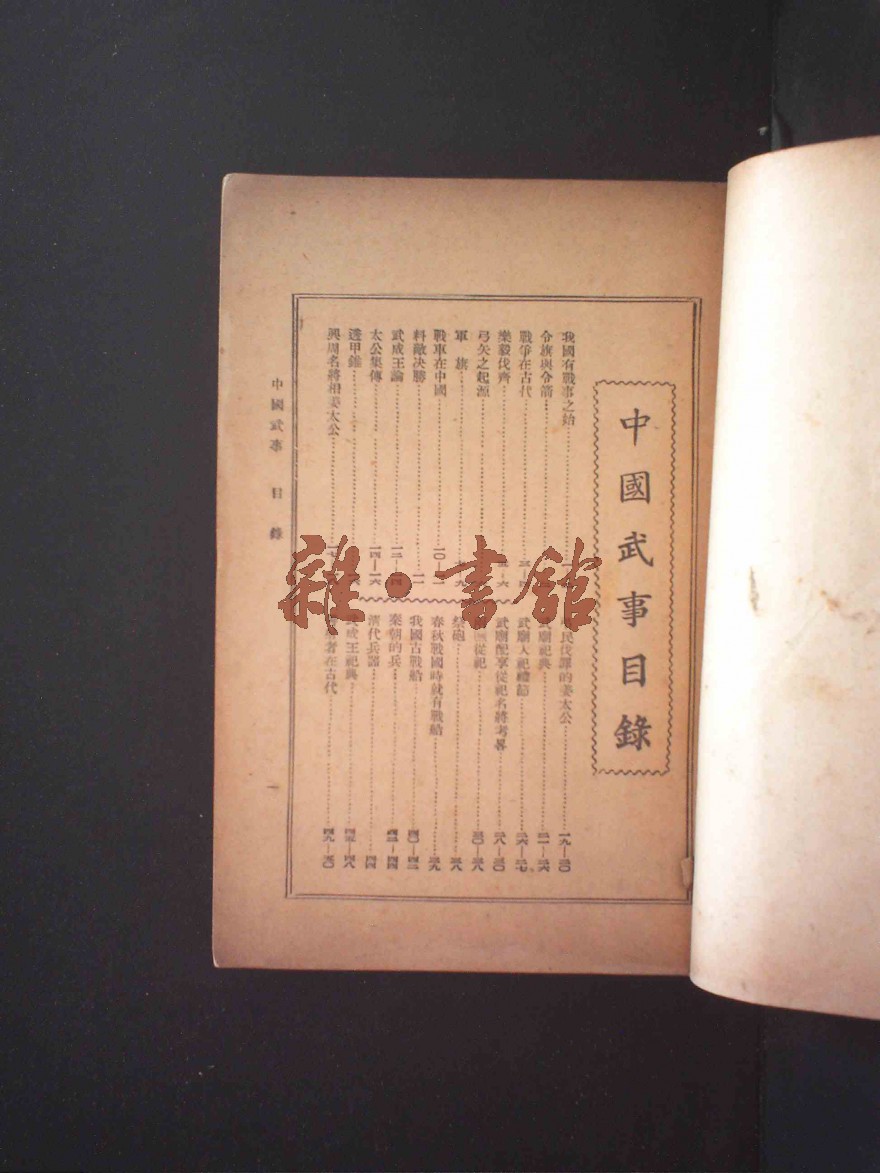 中國武事目錄
我國有戰事之始
令旗與令箭
戰爭在古代
樂毅伐齊
弓矢之起源
軍旗
戰車在中國
料敵決勝
武成王論
太公集傳
透甲錐
興周名將相姜太公
民伐罪的姜太公 一九—二〇
武廟祀典 二一—二六
武廟入祀禮節 二六—二七
武廟配享從祀名將考畧 二八—三〇
從祀 三〇—三八
祭砲 三八
春秋戰國時就有戰船 三九
我國古戰船 四〇—四二
秦朝的兵 四二—四四
清代兵器 四四
成王祀典 四五—四八
者在古代 四九—五〇
中國武事 目錄
一
雜·書館